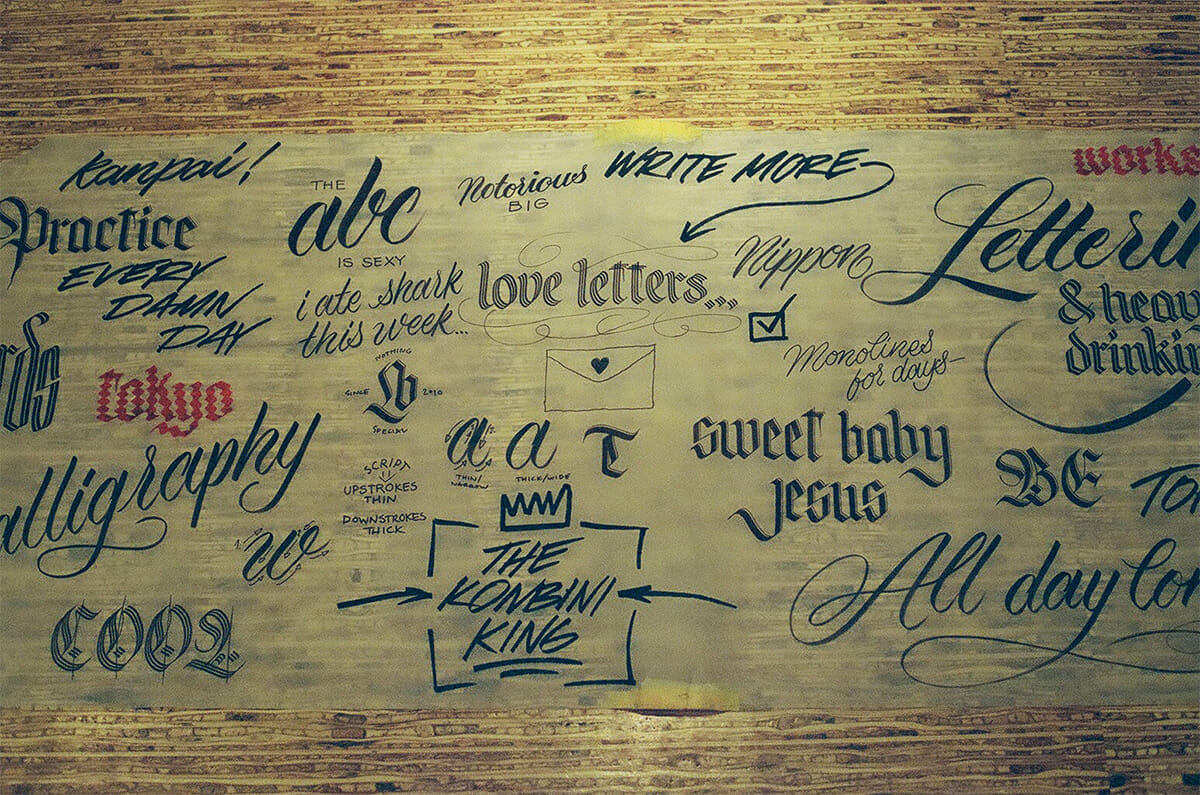 Kanpai!
Practice
EVERY
DAMN
DAY
tokyo
COOL
THE
abc
IS SEXY
i ate shark
this week...
NOTHING
SINCE
2010
SPECIAL
SCRIPT
UPSTROKES
THIN
DOWNSTROKES
THICK
we
Notorious
BIG
WRITE MORE
love letters...
a
THIN/
NARROW
a
THICK/WIDE
T
THE
KONBINI
KING
Nippon
Monolines
for days
sweet baby
Jesus
BE
works
Letterin
& heav
drinkin
All day lon
alligraphy
rds
TO